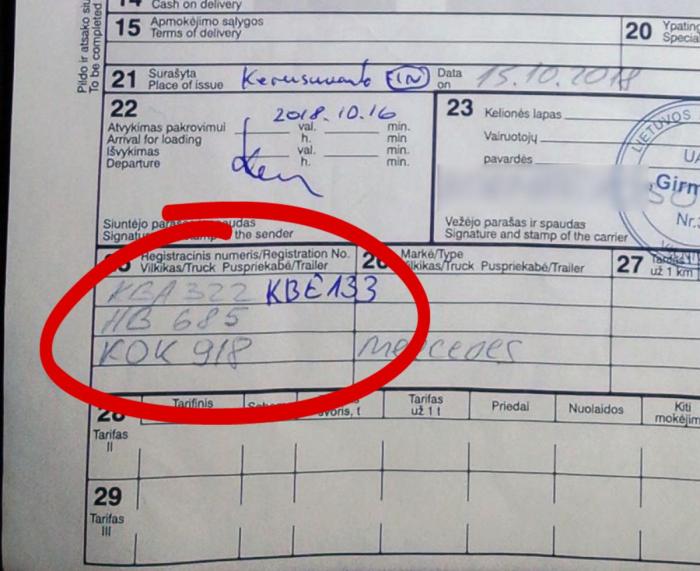 14 Cash on delivery
15 Apmokėjimo sąlygos
Terms of delivery
20 Ypating
Special
Pildo ir atsako siu
To be completed
21 Surašyta
Place of issue
(IN)
Data
on
15.10.2018
22
2018.10.16
Atvykimas pakrovimui val. min.
Arrival for loading h. min.
Išvykimas val. min.
Departure h. min.
Siuntėjo
Signature the sender
23 Kelionės lapas
Vairuotojų
pavardės
Vežėjo parašas ir spaudas
Signature and stamp of the carrier
LIETUVOS
UA
„Girm
Nr.
Registracinis numeris/Registration No.
Vilkikas/Truck Puspriekabė/Trailer
26 Markė/Type
Vilkikas/Truck Puspriekabė/Trailer
27 Tarifas
už 1 km
KBA 322 KBE133
HB 685
KOK 918 mercedes
28
Tarifas
II
Tarifinis
Tarifas
už 1 t
Priedai
Nuolaidos
Kiti
mokėjim
29
Tarifas
III